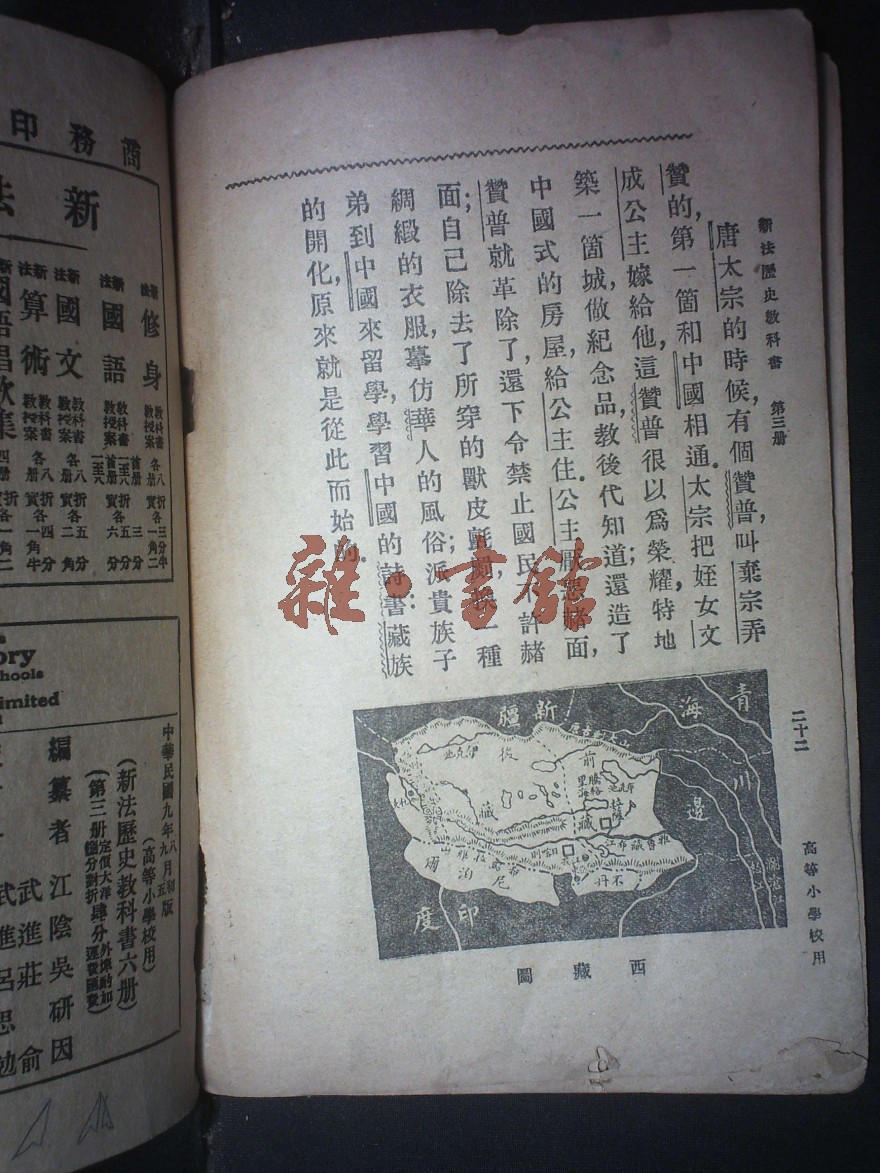 新法歷史教科書　第三册
二十二
高等小學校用
唐太宗的時候,有個贊普,叫棄宗弄
贊的,第一箇和中國相通.太宗把姪女文
成公主嫁給他,這贊普很以爲榮耀,特地
築一箇城,做紀念品,教後代知道;還造了
中國式的房屋,給公主住.公主厭惡赭面,
贊普就革除了,還下令禁止國民不許赭
面;自己除去了所穿的獸皮氈罽,換一種
綢緞的衣服,摹仿華人的風俗;派貴族子
弟到中國來留學,學習中國的詩書:藏族
的開化,原來就是從此而始的.
青海
新疆
川邊
後藏
前藏
騰格里海
拉薩
雅魯藏布江
布丹
尼泊爾
印度
西藏圖
雜·書館
商務印
新法
新法修身
教科書 教授案
各八册
新法國語
教科書 教授案
新法國文
教科書 教授案
新法算術
教科書 教授案
ory
hools
imited
中華民國九年
月
初版
(高等小學校用)
(新法歷史教科書六册)
(第三册定價大洋
編纂者
江陰吳研因
武進莊 俞
武進呂思勉